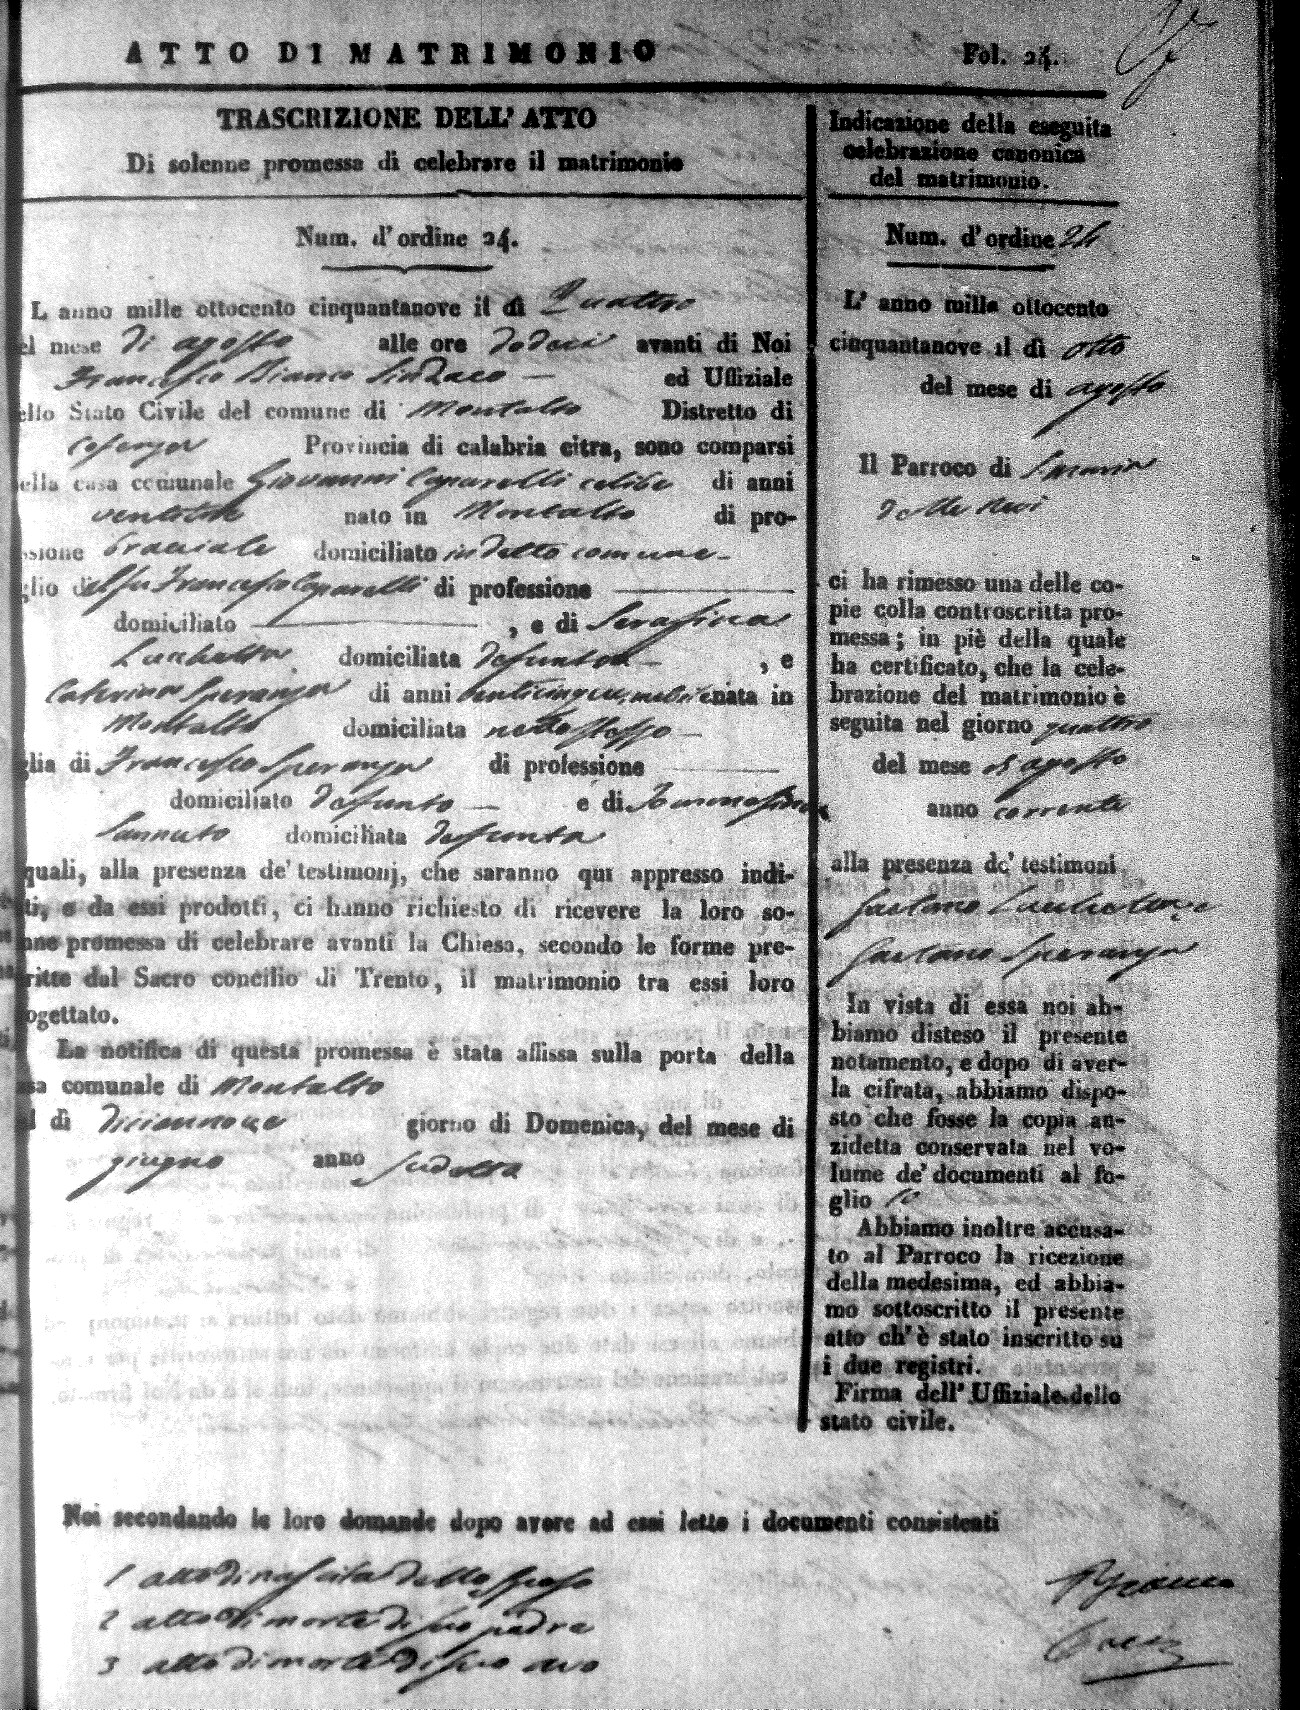 ATTO DI MATRIMONIO
Fol. 24.
TRASCRIZIONE DELL' ATTO
Di solenne promessa di celebrare il matrimonio
Num. d'ordine 24.
L anno mille ottocento cinquantanove il dì Quattro
el mese di agosto alle ore dodeci avanti di Noi
Francesco Bianco Sindaco — ed Uffiziale
ello Stato Civile del comune di Montalto Distretto di
Cosenza Provincia di calabria citra, sono comparsi
ella casa comunale Giovanni Caparelli celibe di anni
nato in Montalto di pro-
ssione bracciale domiciliato in detto comune —
glio di fu Francesco Caparelli di professione
domiciliato , e di Serafina
domiciliata defunta — , e
Caterina Speranza di anni venticinque, nubile nata in
Montalto domiciliata nello stesso —
glia di Francesco Speranza di professione
domiciliato defunto — e di Tommasina
Sannuto domiciliata defunta
quali, alla presenza de' testimonj, che saranno qui appresso indi-
ti, e da essi prodotti, ci hanno richiesto di ricevere la loro so-
nne promessa di celebrare avanti la Chiesa, secondo le forme pre-
ritte dal Sacro concilio di Trento, il matrimonio tra essi loro
ogettato.
La notifica di questa promessa è stata affissa sulla porta della
asa comunale di Montalto
l dì diciannove giorno di Domenica, del mese di
giugno anno sudetto
Indicazione della eseguita
celebrazione canonica
del matrimonio.
Num. d'ordine 24
L' anno mille ottocento
cinquantanove il dì otto
del mese di agosto
Il Parroco di S. Maria
della Nevi
ci ha rimesso una delle co-
pie colla controscritta pro-
messa; in piè della quale
ha certificato, che la cele-
brazione del matrimonio è
seguita nel giorno quattro
del mese di agosto
anno corrente
alla presenza de' testimoni
Gaetano
Gaetano Speranza
In vista di essa noi ab-
biamo disteso il presente
notamento, e dopo di aver-
la cifrata, abbiamo dispo-
sto che fosse la copia an-
zidetta conservata nel vo-
lume de' documenti al fo-
glio 10
Abbiamo inoltre accusa-
to al Parroco la ricezione
della medesima, ed abbia-
mo sottoscritto il presente
atto ch' è stato inscritto su
i due registri.
Firma dell' Uffiziale dello
stato civile.
Noi secondando le loro domande dopo avere ad essi letto i documenti consistenti
1 atto di nascita dello sposo
2 atto di morte di suo padre
3 atto di morte di suo avo